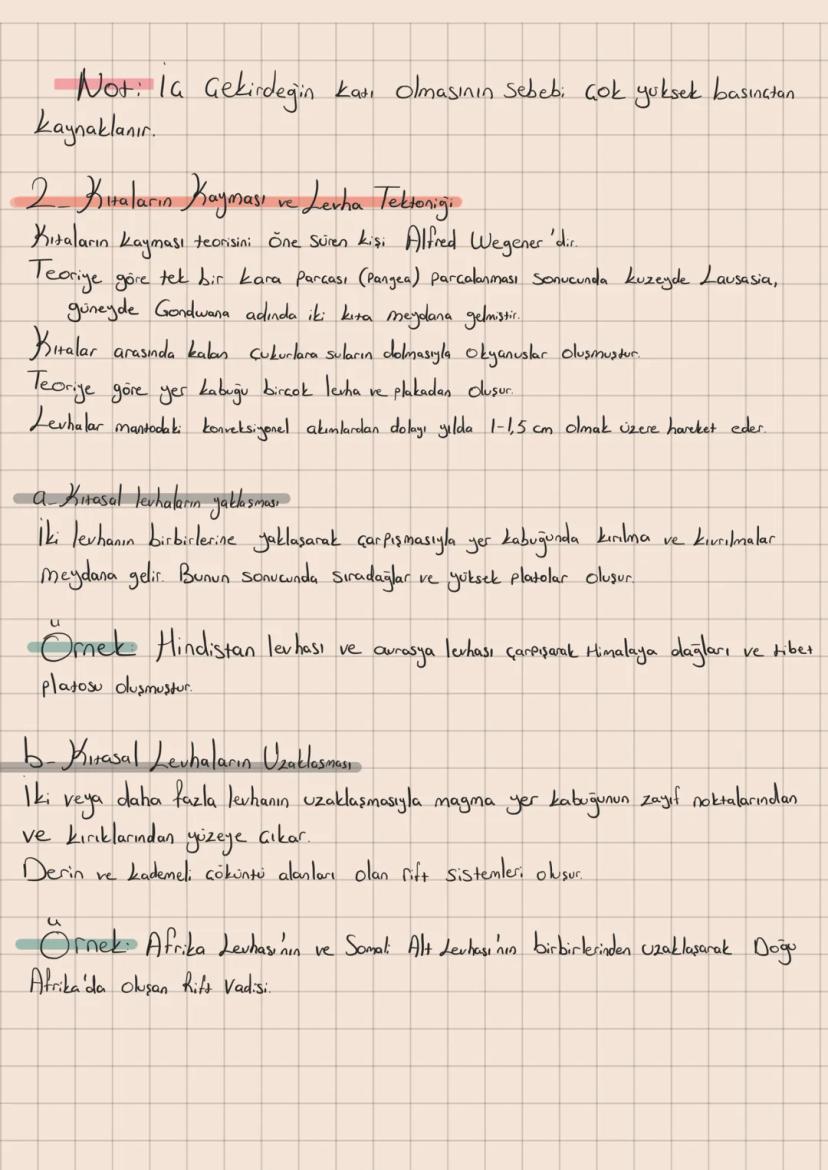 Not: İç Çekirdeğin katı olmasının sebebi çok yüksek basınçtan
kaynaklanır.
2- Kıtaların Kayması ve Levha Tektoniği
Kıtaların kayması teorisini öne süren kişi Alfred Wegener'dir.
Teoriye göre tek bir kara parçası (Pangea) parçalanması sonucunda kuzeyde Lausasia,
güneyde Gondwana adında iki kıta meydana gelmiştir.
Kıtalar arasında kalan çukurlara suların dolmasıyla okyanuslar oluşmuştur.
Teoriye göre yer kabuğu birçok levha ve plakadan oluşur.
Levhalar mantodaki konveksiyonel akımlardan dolayı yılda 1-1,5 cm olmak üzere hareket eder.
a- Kıtasal levhaların yaklaşması
İki levhanın birbirlerine yaklaşarak çarpışmasıyla yer kabuğunda kırılma ve kıvrılmalar
meydana gelir. Bunun sonucunda sıradağlar ve yüksek platolar oluşur.
Örnek: Hindistan levhası ve avrasya levhası çarpışarak Himalaya dağları ve tibet
platosu oluşmuştur.
b- Kıtasal Levhaların Uzaklaşması
İki veya daha fazla levhanın uzaklaşmasıyla magma yer kabuğunun zayıf noktalarından
ve kırıklarından yüzeye çıkar.
Derin ve kademeli çöküntü alanları olan rift sistemleri oluşur.
Örnek: Afrika Levhası'nın ve Somali Alt Levhası'nın birbirlerinden uzaklaşarak Doğu
Afrika'da oluşan Rift Vadisi.